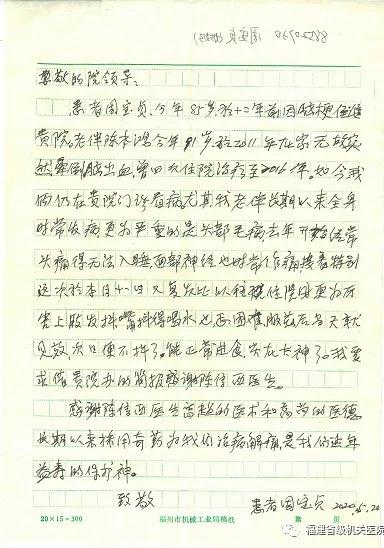 尊敬的院领导:
患者周宝贞,今年85岁,于十二年前因脑梗住进
贵院。老伴陈木 今年91岁于2011年在家无故突
然晕倒脑出血,曾四次住院治疗至2016年。如今我
俩仍在贵院门诊看病尤其我老伴长期以来全身
时常发病,更为严重的是头部毛病,去年开始经常
头痛得无法入睡面部神经也时常作痛 特别
这次于本月十一日又复发比以往 住院时更为厉
害上肢发抖嘴抖得喝水也困难,服药后当天就
见效次日便不抖了。能正常进食,实在太神了。我要
求借贵院办的简报感谢陈 西医生。
感谢陈 西医生高超的医术和高尚的医德
长期以来採用奇药为我俩治病解痛是我俩延年
益寿的保护神。
致敬
患者周宝贞 2020.5.20
20×15=300 福州市机械工业局稿纸 第 页
福建省级机关医院